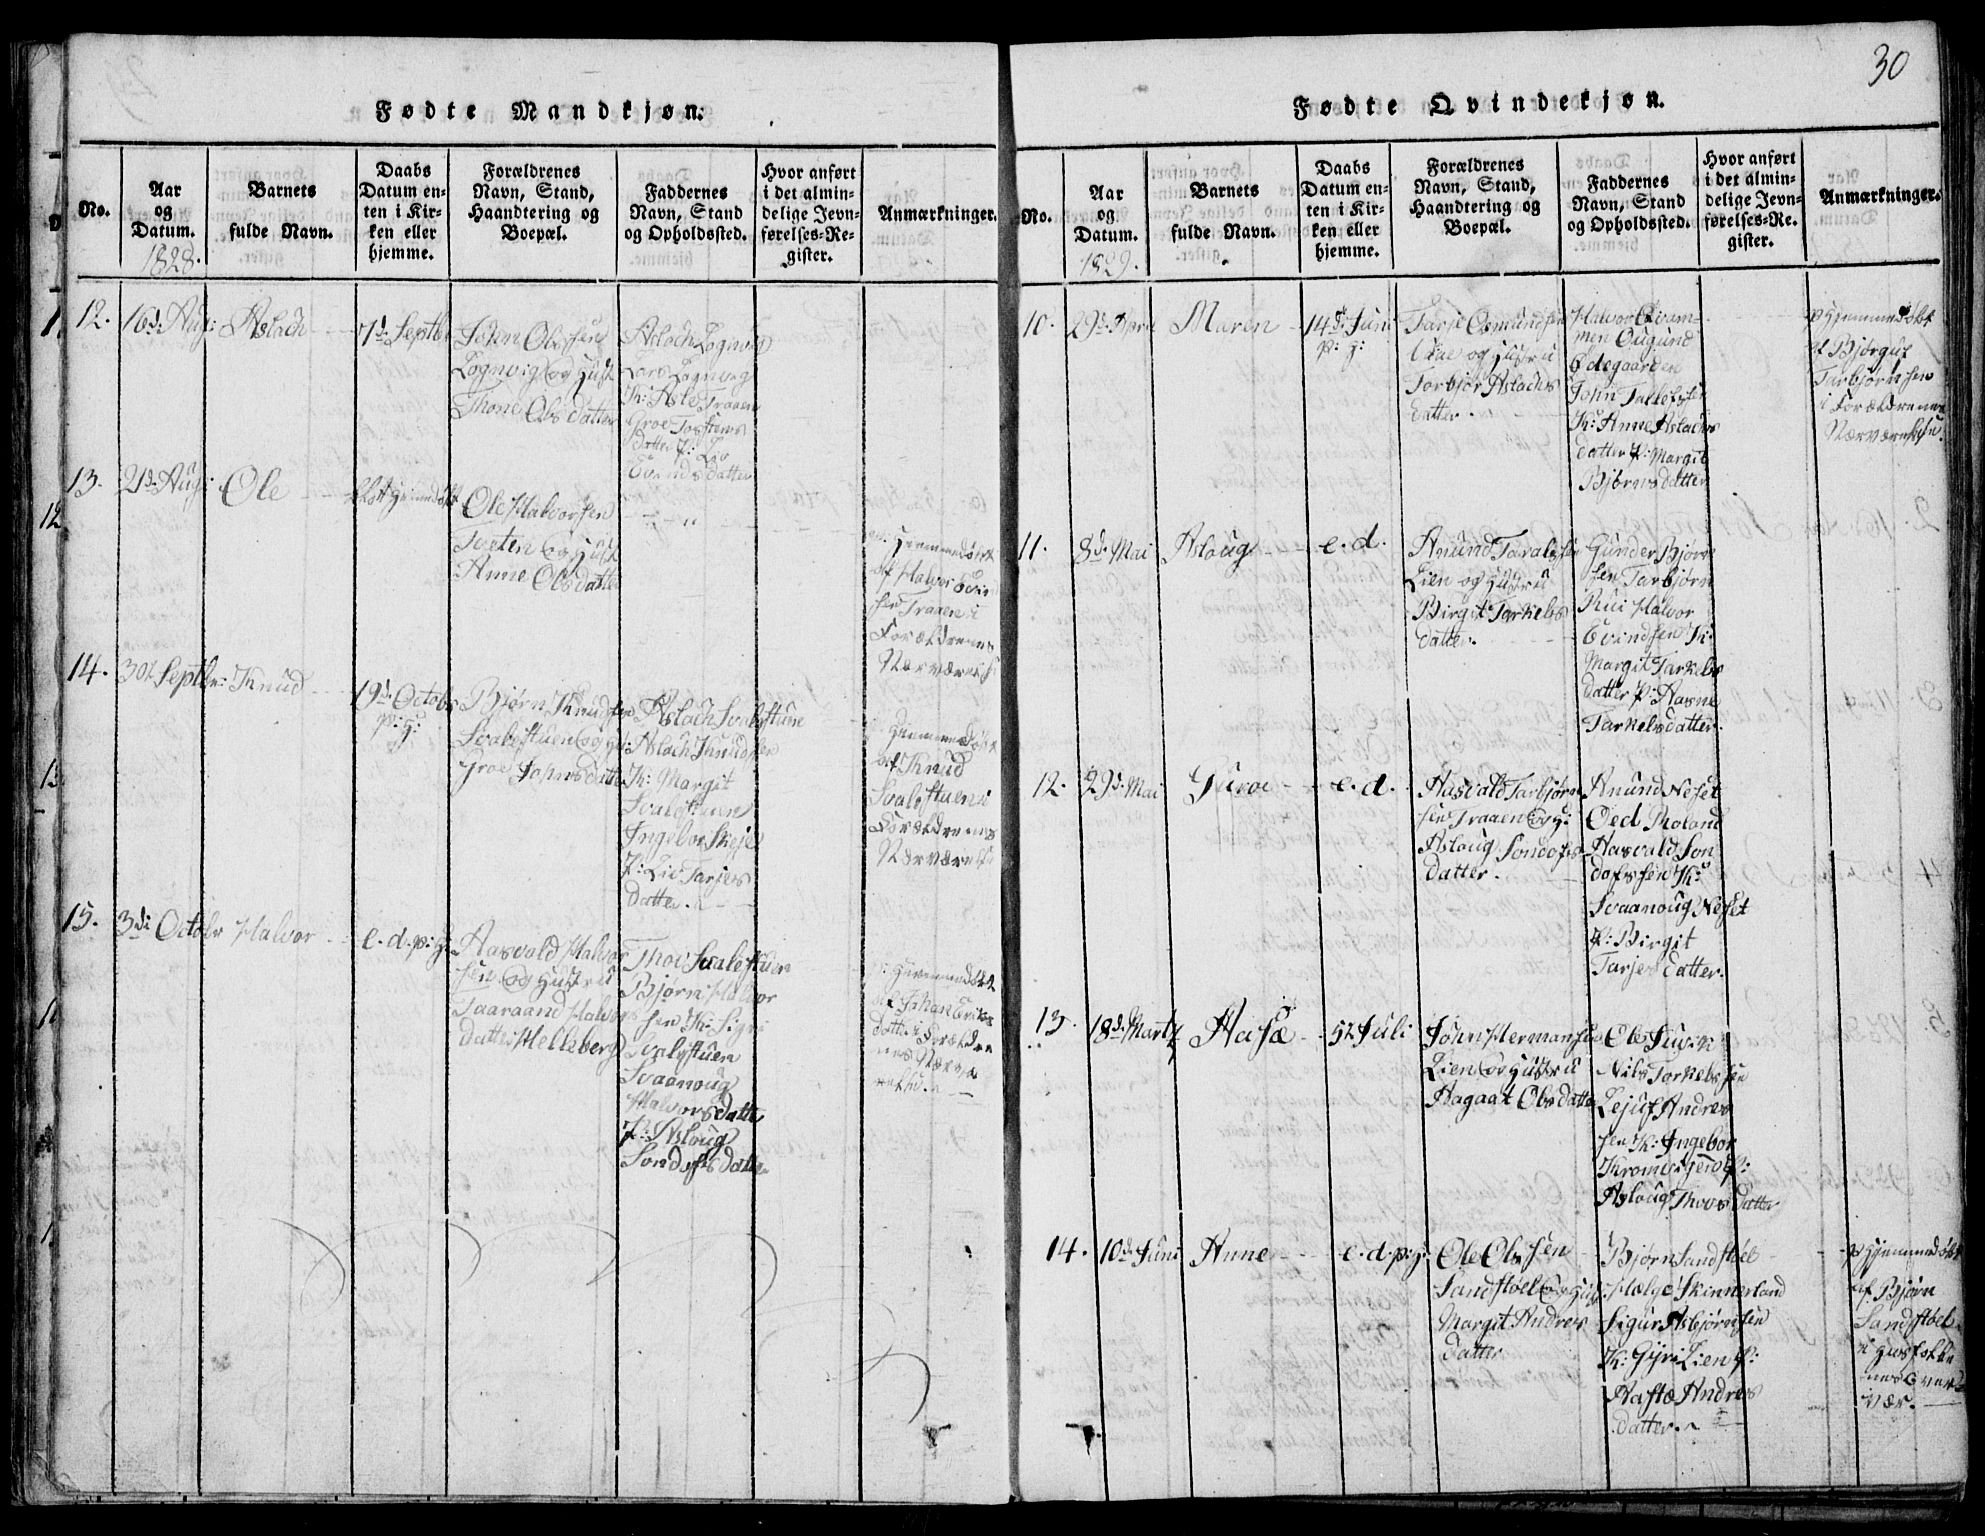 Fødte Mandkjøn.
No.
Aar
og
Datum.
1828.
Barnets
fulde Navn.
Daabs
Datum en-
ten i Kir-
ken eller
hjemme.
Forældrenes
Navn, Stand,
Haandtering og
Boepæl.
Faddernes
Navn, Stand
og Opholdssted.
Hvor anført
i det almin-
delige Jevn-
førelses-Re-
gister.
Anmærkninger.
12.
16d. Aug:
Aslach
7d. Septbr
John Olssen
Lognvig og Hust
Thone Olsdatter
Aslach Lognvig
Lars Lognvig
K: Aste Traaen
Groe Tostens
datter P: Liv
Evindsdatter
13.
21d. Aug:
Ole
Ole Halvorsen
Tveten og Hust
Anne Olsdatter
Hjemmedøbt
af Halvor Evin
sen Traaen i
Forældrenes
Nærværelse
14.
30t Septbr:
Knud
19d. Octobr
p: H:
Bjørn Knudsen
Svalestuen og H:
Groe Johnsdatter
Aslach Svalestuen
Aslach Knudsen
K: Margit
Svalestuen
Ingebor Skeje
P: Liv Tarjes
datter.
Hjemmedøbt
af Knud
Svalestuen i
Forældrenes
Nærværelse
15.
3di Octobr
Halvor
e. d. p: H:
Aasvald Halvor
sen og Hustru
Taaraand Halvors
datter Helleberg
Thov Svalestuen
Bjørn Halvor
sen K: Sigri
Svalestuen
Svaanoug
Halvorsdatter
P: Asloug
Sondofsdatter
Hjemmedøbt
af Johan Eriks
datter i Forældre
nes Nærvæ
relse.
30
Fødte Qvindekjøn.
No.
Aar
og
Datum.
1829.
Barnets
fulde Navn.
Daabs
Datum en-
ten i Kir-
ken eller
hjemme.
Forældrenes
Navn, Stand,
Haandtering og
Boepæl.
Faddernes
Navn, Stand
og Opholdssted.
Hvor anført
i det almin-
delige Jevn-
førelses-Re-
gister.
Anmærkninger.
10.
29d. April
Maren
14d. Juni
p: H:
Tarje Osmundsen
og Hustru
Torbjør Aslachs
datter.
Halvor
Ougund
Ødegaarden
John Tallefssen
K: Anne Aslachs
datter P: Margit
Bjørnsdatter
Hjemmedøbt
af Bjørguf
Tarbjørnsen
i Forældrenes
Nærværelse.
11.
8d. Mai
Aslaug
e. d.
Anund Taralssen
Lien og Hustru
Birgit Tarkels
datter.
Gunder Bjørn
sen Tarbjørn
Rui Halvor
Evindsen K:
Margit Tarkels
datter P: Aasne
Tarkelsdatter.
12.
29d. Mai
Guroe
e. d.
Aasvald Tarbjørn
sen Traaen og H:
Aslaug Sondofs
datter.
Anund Neset
Oed Roland
Aasvald Son
dofssen K:
Svaanoug Neset
P: Birgit
Tarjesdatter.
13.
18d. Martz
Aasæ
5t. Juli
John Hermansen
Lien og Hustru
Aagaat Olsdatter
Ole Juvin
Nils Tarkelssen
Lejuf Andres
sen K: Ingebor
Kromvigen P:
Aslaug Thovsdatter
14.
10d. Juni
Anne
e. d. p: H:
Ole Olssen
Sandstøel og Hust
Margit Andres
datter
Bjørn Sandstøel
Hælge Skinnerland
Sigur Asbjørnsen
K: Gyri Lien P:
Aastæ Andres
datter.
Hjemmedøbt
af Bjørn
Sandstøel
i Husfolke
nes Over
vær.